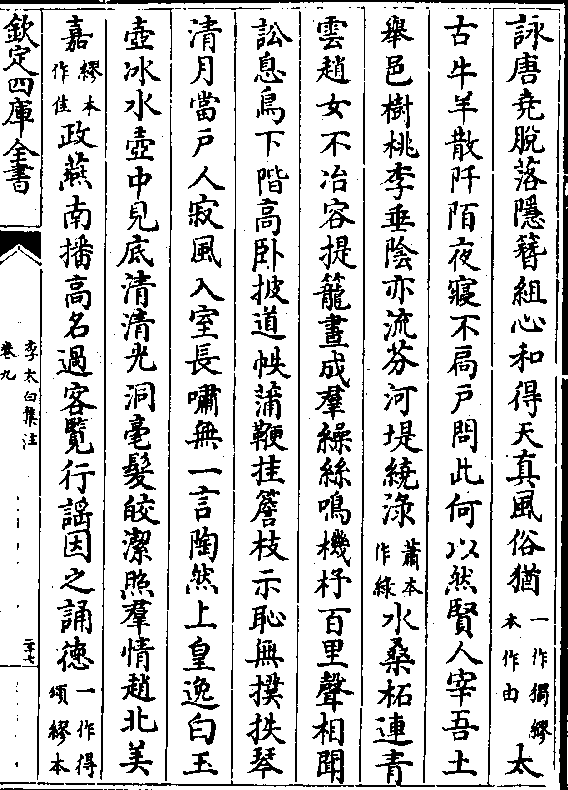 詠唐堯脫落隱簪組心和得天真風俗猶一作獨繆本作由太
古牛羊散阡陌夜寢不扃戶問此何以然賢人宰吾土
舉邑樹桃李垂陰亦流芬河堤繞淥蕭本作綠水桑柘連青
雲趙女不冶容提籠晝成羣繰絲鳴機杼百里聲相聞
訟息鳥下階高卧披道帙蒲鞭挂簷枝示恥無撲抶琴
清月當戶人寂風入室長嘯無一言陶然上皇逸白玉
壺冰水壺中見底清清光洞毫髮皎潔照羣情趙北美
嘉繆本作佳政燕南播高名過客覽行謡因之誦德一作得頌繆本
欽定四庫全書
李太白集注
卷九
二十七